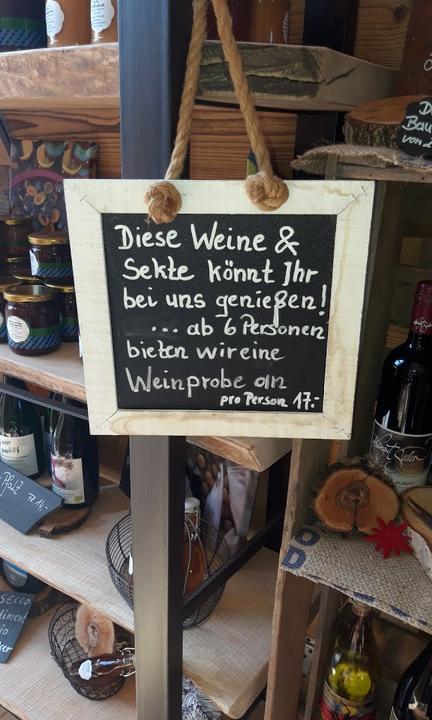 Diese Weine &
Sekte könnt Ihr
bei uns genießen!
... ab 6 Personen
bieten wir eine
Weinprobe an
pro Person 17.-
Pfalz